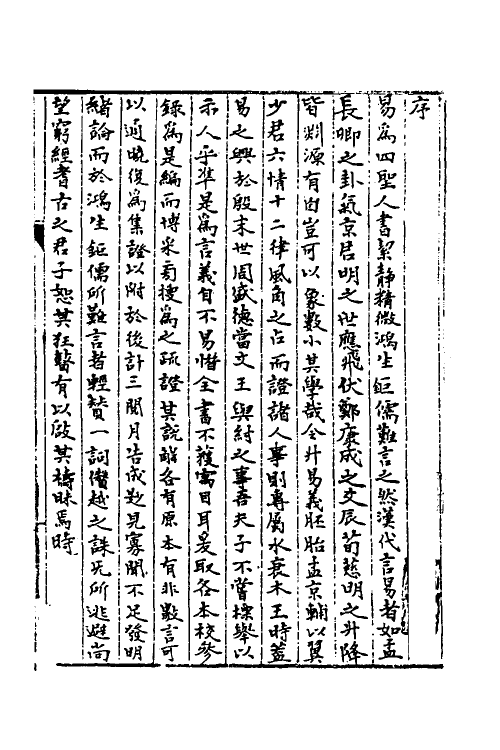 序
易爲四聖人書絜静精微鴻生鉅儒難言之然漢代言易者如孟
長卿之卦氣京君明之世應飛伏鄭康成之爻辰荀慈明之升降
皆淵源有由豈可以象數小其學哉令升易義胚胎孟京輔以翼
少君六情十二律風角之占而證諸人事則專屬水衰木王時蓋
易之興於殷末世周盛德當文王與紂之事吾夫子不嘗標舉以
示人乎準是爲言義自不易惜全書不獲寓目耳爰取各本校參
錄爲是編而博采旁搜爲之疏證其説雖各有原本有非數言可
以通曉復爲集證以附於後計三閱月告成匙見寡聞不足發明
緒論而於鴻生鉅儒所難言者輕贊一詞僭越之誅旡所逃避尚
望窮經耆古之君子恕其狂瞽有以啟其檮昧焉時